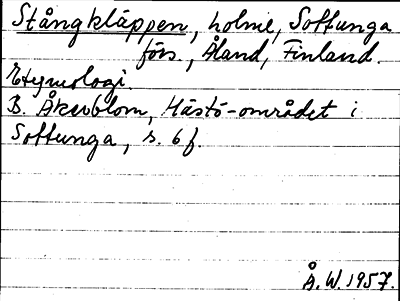 Stångkläppen, holme, Sottunga
förs., Åland, Finland.
Etymologi.
B. Åkerblom, Hästö-området i
Sottunga, s. 6 f.
Å. W. 1957.